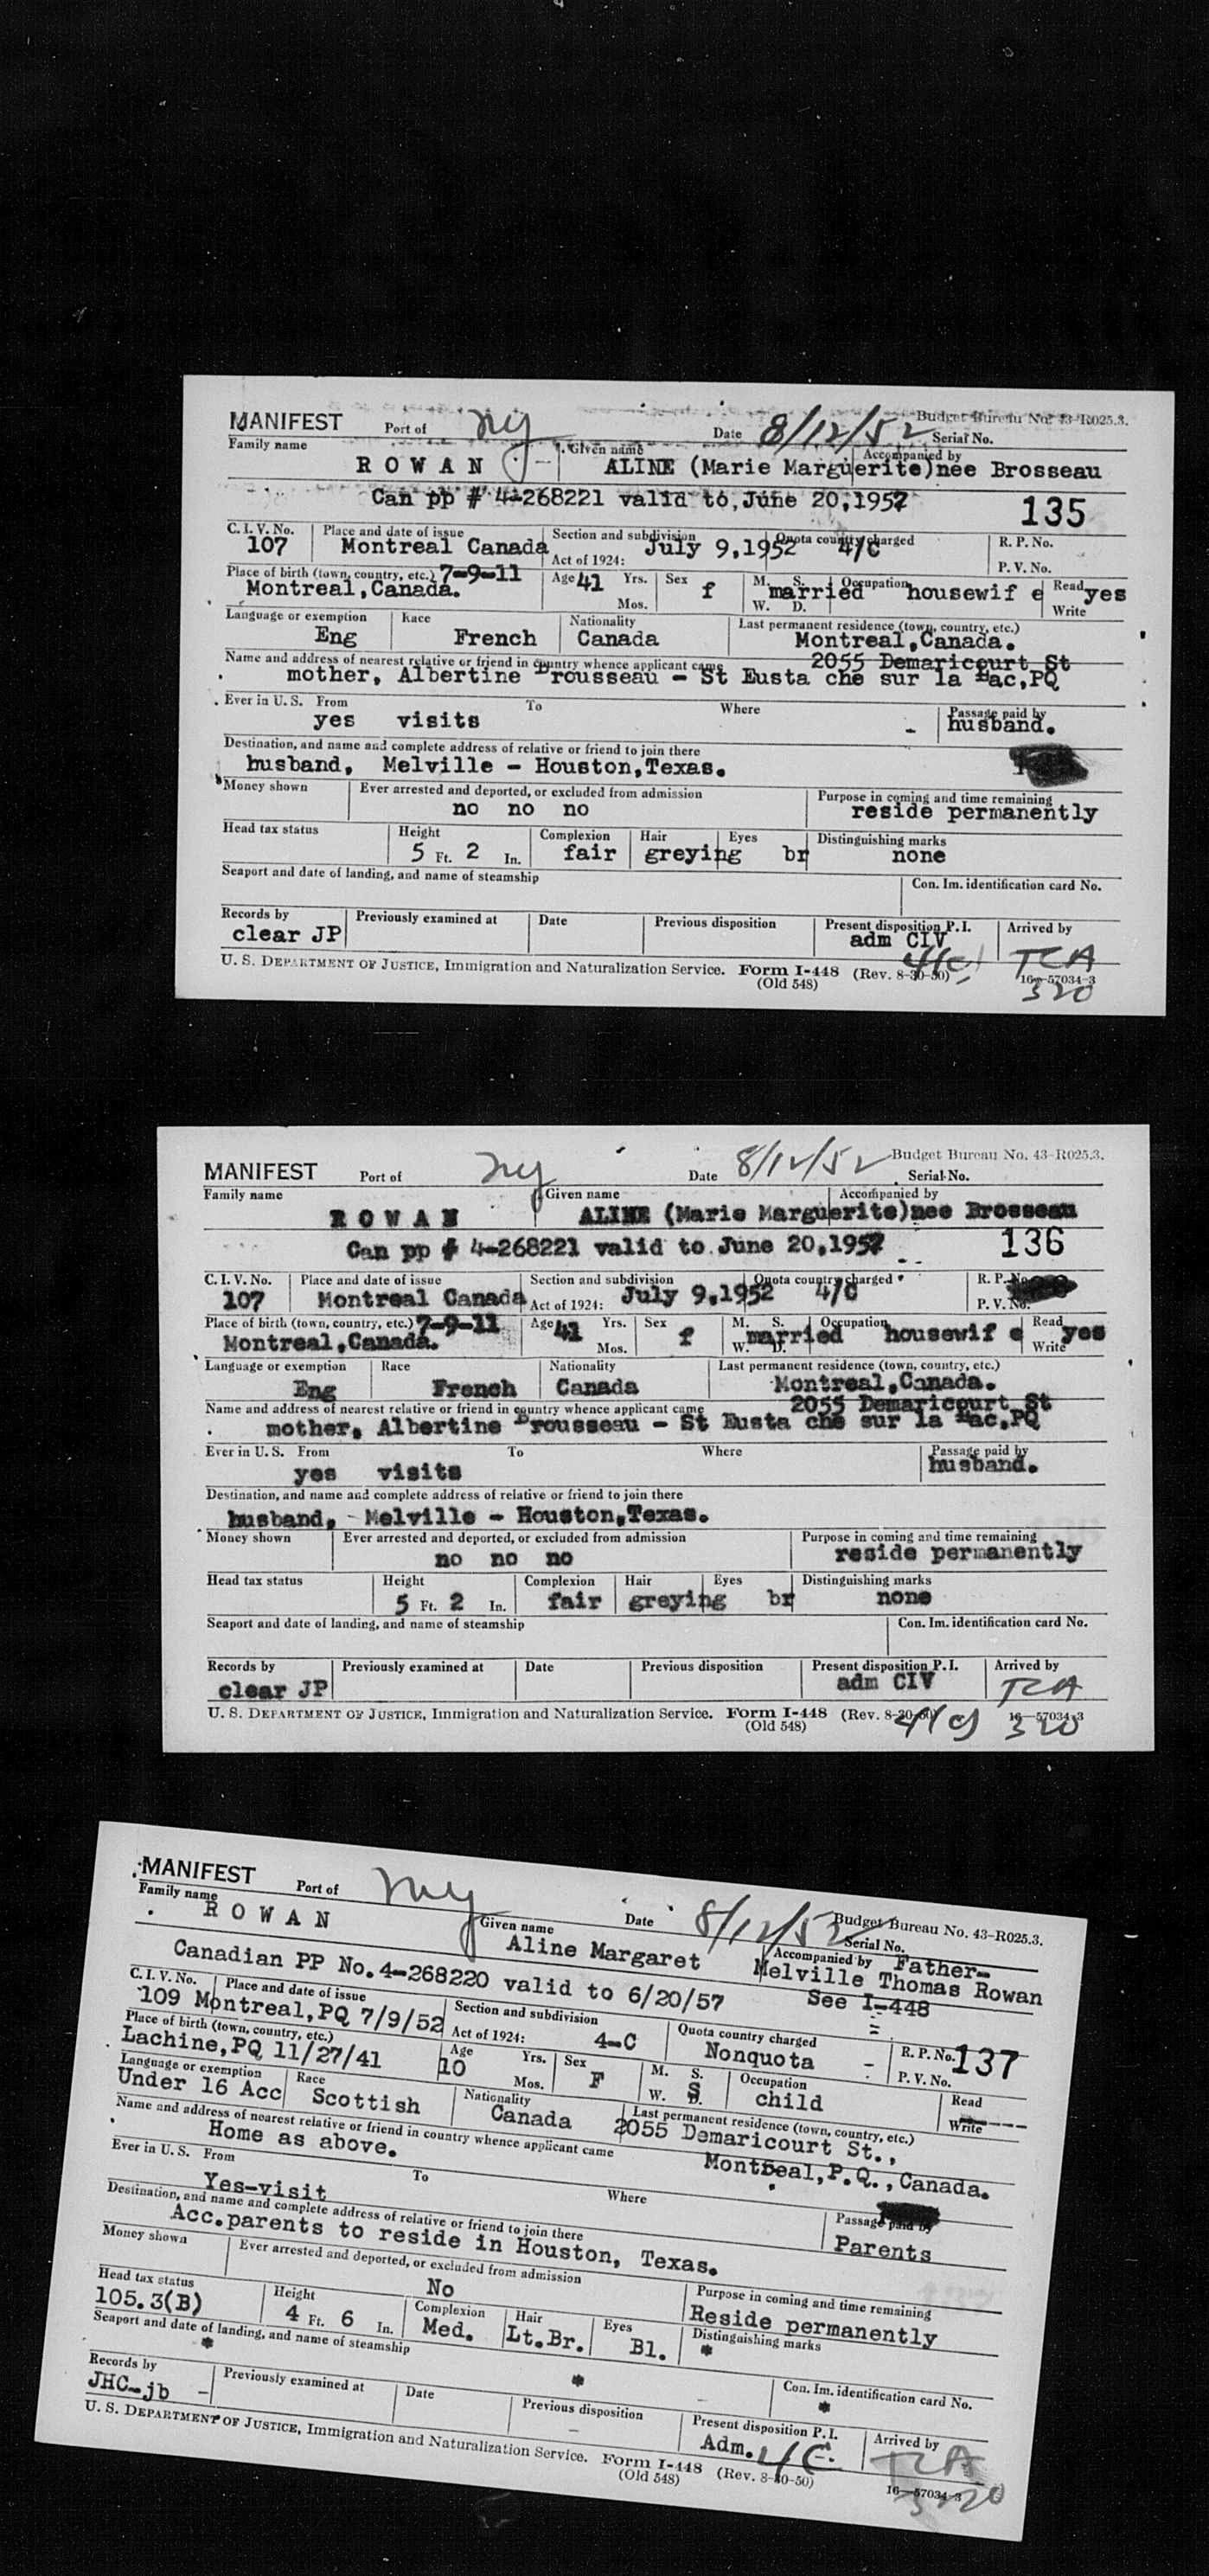 MANIFEST Port of NY Date 8/12/52 Budget Bureau No. 43-R025.3.
Serial No.
Family name Given name Accompanied by
ROWAN ALINE (Marie Marguerite)nee Brosseau
Can pp # 4-268221 valid to June 20,1957 135
C. I. V. No. Place and date of issue Section and subdivision Quota country charged R. P. No.
107 Montreal Canada Act of 1924: July 9,1952 4/C P. V. No.
Place of birth (town, country, etc.) 7-9-11 Age 41 Yrs. Sex f M. S. married Occupation housewif e Read yes
Montreal,Canada. Mos. W. D. Write
Language or exemption Race Nationality Last permanent residence (town, country, etc.)
Eng French Canada Montreal,Canada.
Name and address of nearest relative or friend in country whence applicant came 2055 Demaricourt St
mother, Albertine Brousseau - St Eusta che sur la Lac,PQ
Ever in U. S. From To Where Passage paid by
yes visits husband.
Destination, and name and complete address of relative or friend to join there
husband, Melville - Houston,Texas.
Money shown Ever arrested and deported, or excluded from admission Purpose in coming and time remaining
no no no reside permanently
Head tax status Height Complexion Hair Eyes Distinguishing marks
5 Ft. 2 In. fair greying br none
Seaport and date of landing, and name of steamship Con. Im. identification card No.
Records by Previously examined at Date Previous disposition Present disposition P. I. Arrived by
clear JP adm CIV 4(c) TCA
U. S. DEPARTMENT OF JUSTICE, Immigration and Naturalization Service. Form I-448 (Rev. 8-30-50) 16-57034-3
(Old 548) 320
MANIFEST Port of NY Date 8/12/52 Budget Bureau No. 43-R025.3.
Serial No.
Family name Given name Accompanied by
ROWAN ALINE (Marie Marguerite)nee Brosseau
Can pp # 4-268221 valid to June 20,1957 136
C. I. V. No. Place and date of issue Section and subdivision Quota country charged R. P. No.
107 Montreal Canada Act of 1924: July 9,1952 4/C P. V. No.
Place of birth (town, country, etc.) 7-9-11 Age 41 Yrs. Sex f M. S. married Occupation housewif e Read yes
Montreal,Canada. Mos. W. D. Write
Language or exemption Race Nationality Last permanent residence (town, country, etc.)
Eng French Canada Montreal,Canada.
Name and address of nearest relative or friend in country whence applicant came 2055 Demaricourt St
mother, Albertine Brousseau - St Eusta che sur la Lac,PQ
Ever in U. S. From To Where Passage paid by
yes visits husband.
Destination, and name and complete address of relative or friend to join there
husband, Melville - Houston,Texas.
Money shown Ever arrested and deported, or excluded from admission Purpose in coming and time remaining
no no no reside permanently
Head tax status Height Complexion Hair Eyes Distinguishing marks
5 Ft. 2 In. fair greying br none
Seaport and date of landing, and name of steamship Con. Im. identification card No.
Records by Previously examined at Date Previous disposition Present disposition P. I. Arrived by
clear JP adm CIV TCA
U. S. DEPARTMENT OF JUSTICE, Immigration and Naturalization Service. Form I-448 (Rev. 8-30-50) 4(c) 16-57034-3
(Old 548) 320
MANIFEST Port of NY Date 8/12/52 Budget Bureau No. 43-R025.3.
Serial No.
Family name Given name Accompanied by Father-
ROWAN Aline Margaret Melville Thomas Rowan
Canadian PP No.4-268220 valid to 6/20/57 See I-448
C. I. V. No. Place and date of issue Section and subdivision Quota country charged R. P. No. 137
109 Montreal,PQ 7/9/52 Act of 1924: 4-C Nonquota P. V. No.
Place of birth (town, country, etc.) Age Yrs. Sex M. S. Occupation Read
Lachine,PQ 11/27/41 10 Mos. F W. S D. child Write ----
Language or exemption Race Nationality Last permanent residence (town, country, etc.)
Under 16 Acc Scottish Canada 2055 Demaricourt St.,
Name and address of nearest relative or friend in country whence applicant came
Home as above. Montreal,P.Q.,Canada.
Ever in U. S. From To Where Passage paid by
Yes-visit Parents
Destination, and name and complete address of relative or friend to join there
Acc.parents to reside in Houston, Texas.
Money shown Ever arrested and deported, or excluded from admission Purpose in coming and time remaining
No Reside permanently
Head tax status Height Complexion Hair Eyes Distinguishing marks
105.3(B) 4 Ft. 6 In. Med. Lt.Br. Bl. *
Seaport and date of landing, and name of steamship Con. Im. identification card No.
* * *
Records by Previously examined at Date Previous disposition Present disposition P. I. Arrived by
JHC-jb - Adm. 4C TCA
U. S. DEPARTMENT OF JUSTICE, Immigration and Naturalization Service. Form I-448 (Rev. 8-30-50) 16-57034-3
(Old 548) 320